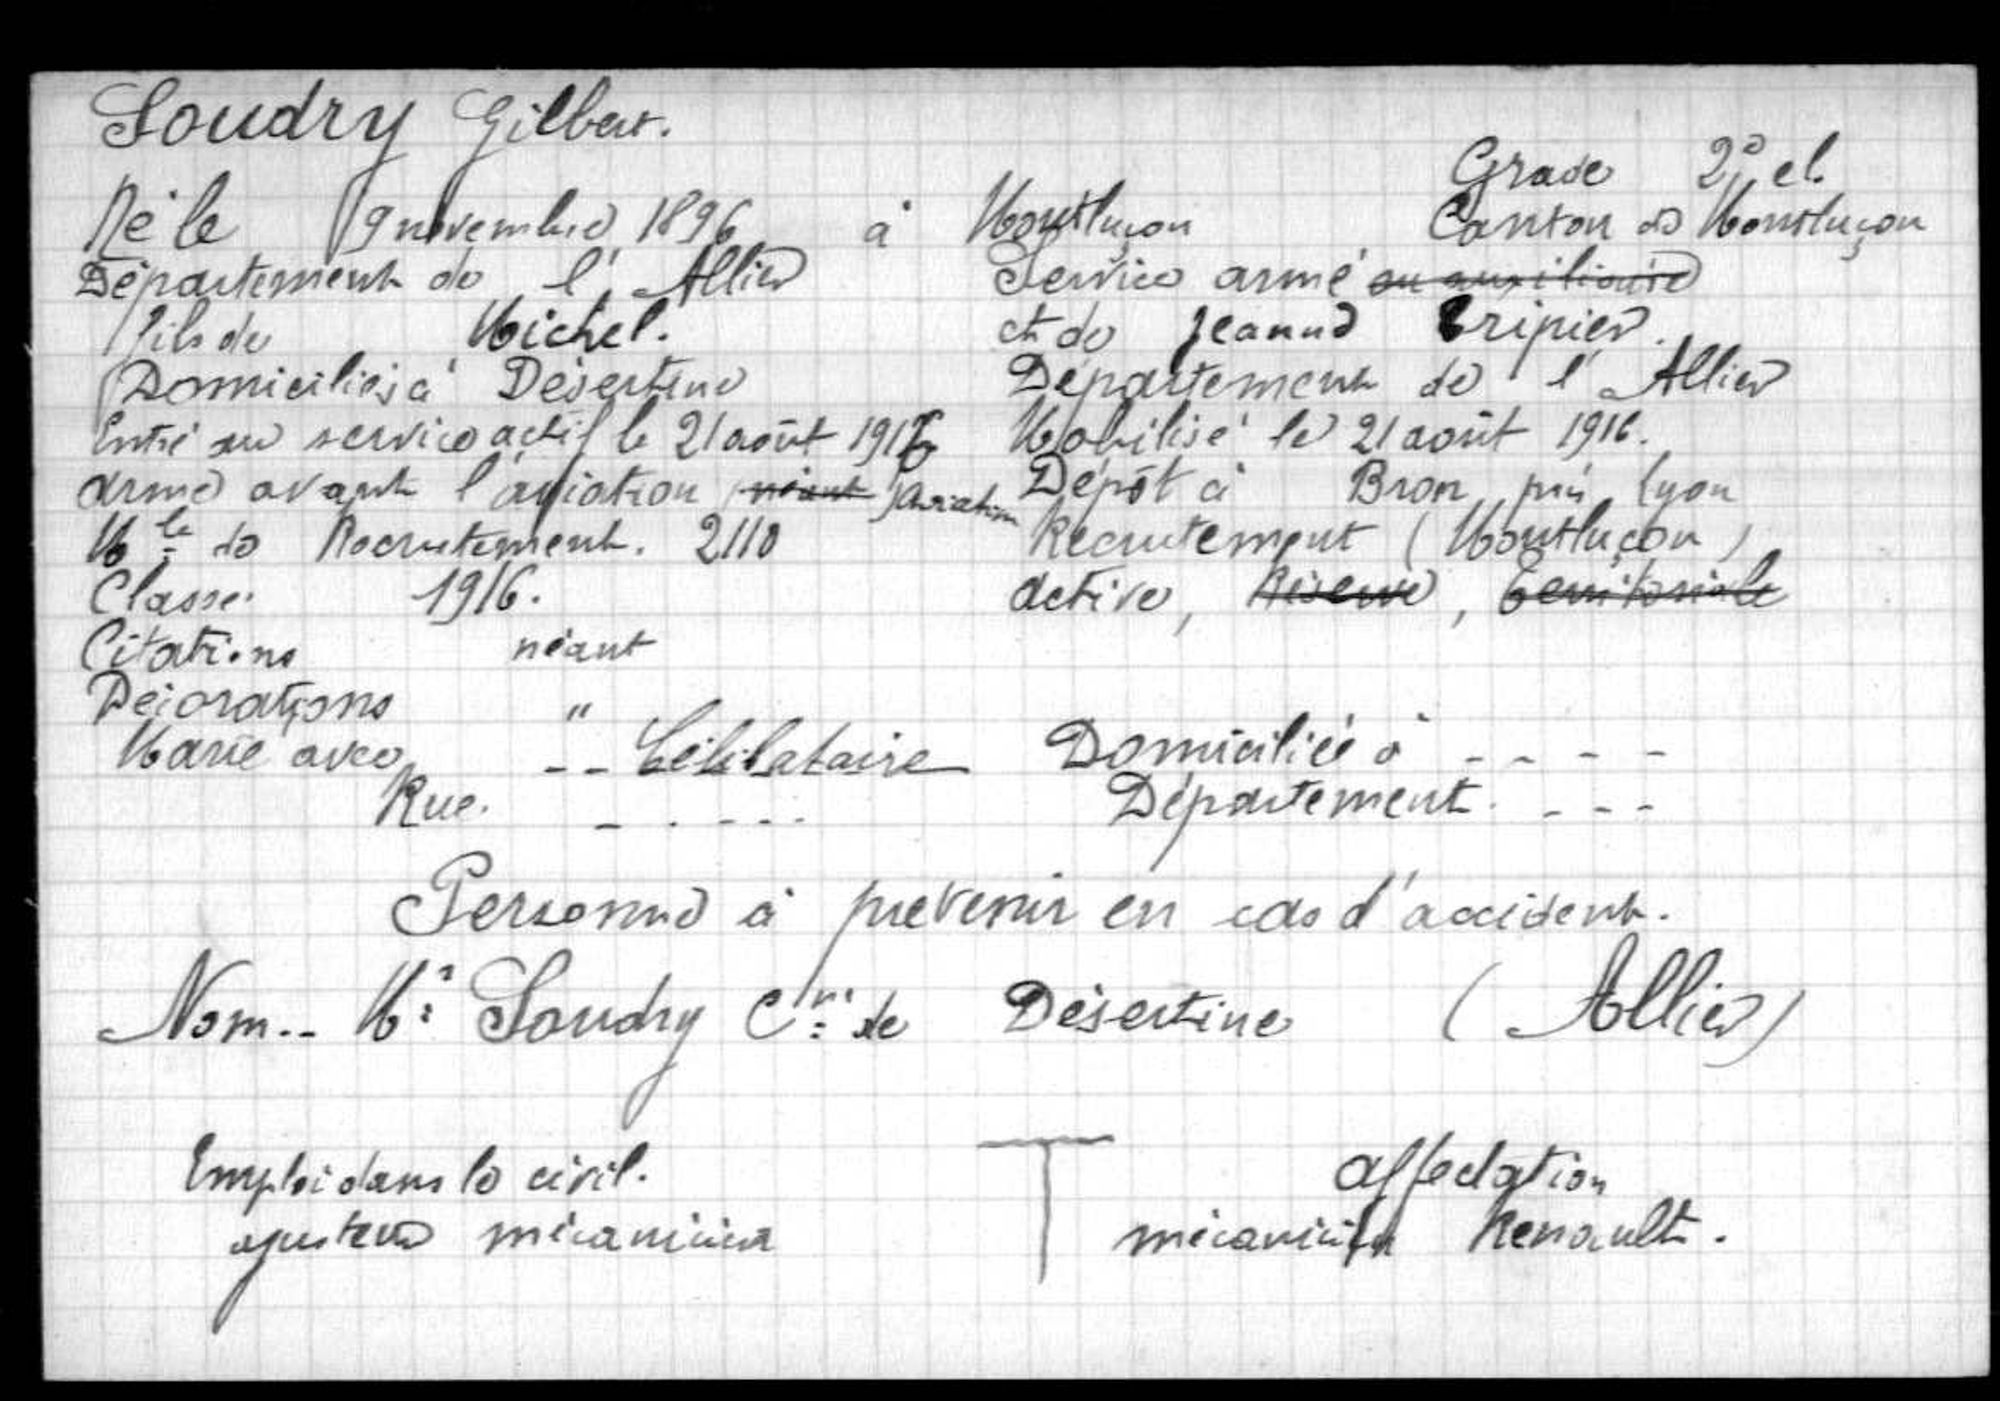 Soudry Gilbert.
Grade 2e cl.
Né le 19 novembre 1896 à Montluçon Canton de Montluçon
Département de l'Allier Service armé ou auxiliaire
fils de Michel. et de Jeanne Tripier.
Domiciliés à Désertine Département de l'Allier
Entré au service actif le 21 août 1916 Mobilisé le 21 août 1916.
Arme avant l'aviation néant aviation Dépôt à Bron près Lyon
Mle de Recrutement. 2110 Recrutement (Montluçon)
Classe. 1916. Active, Réserve, Territoriale
Citations néant
Décorations "
Marié avec -- Célibataire Domicilié à - - - -
Rue. - . - - - Département. - - -
Personne à prévenir en cas d'accident.
Nom.. Mr Soudry Cne de Désertine (Allier)
Emploi dans le civil. Affectation
ajusteur mécanicien mécanicien Renault.